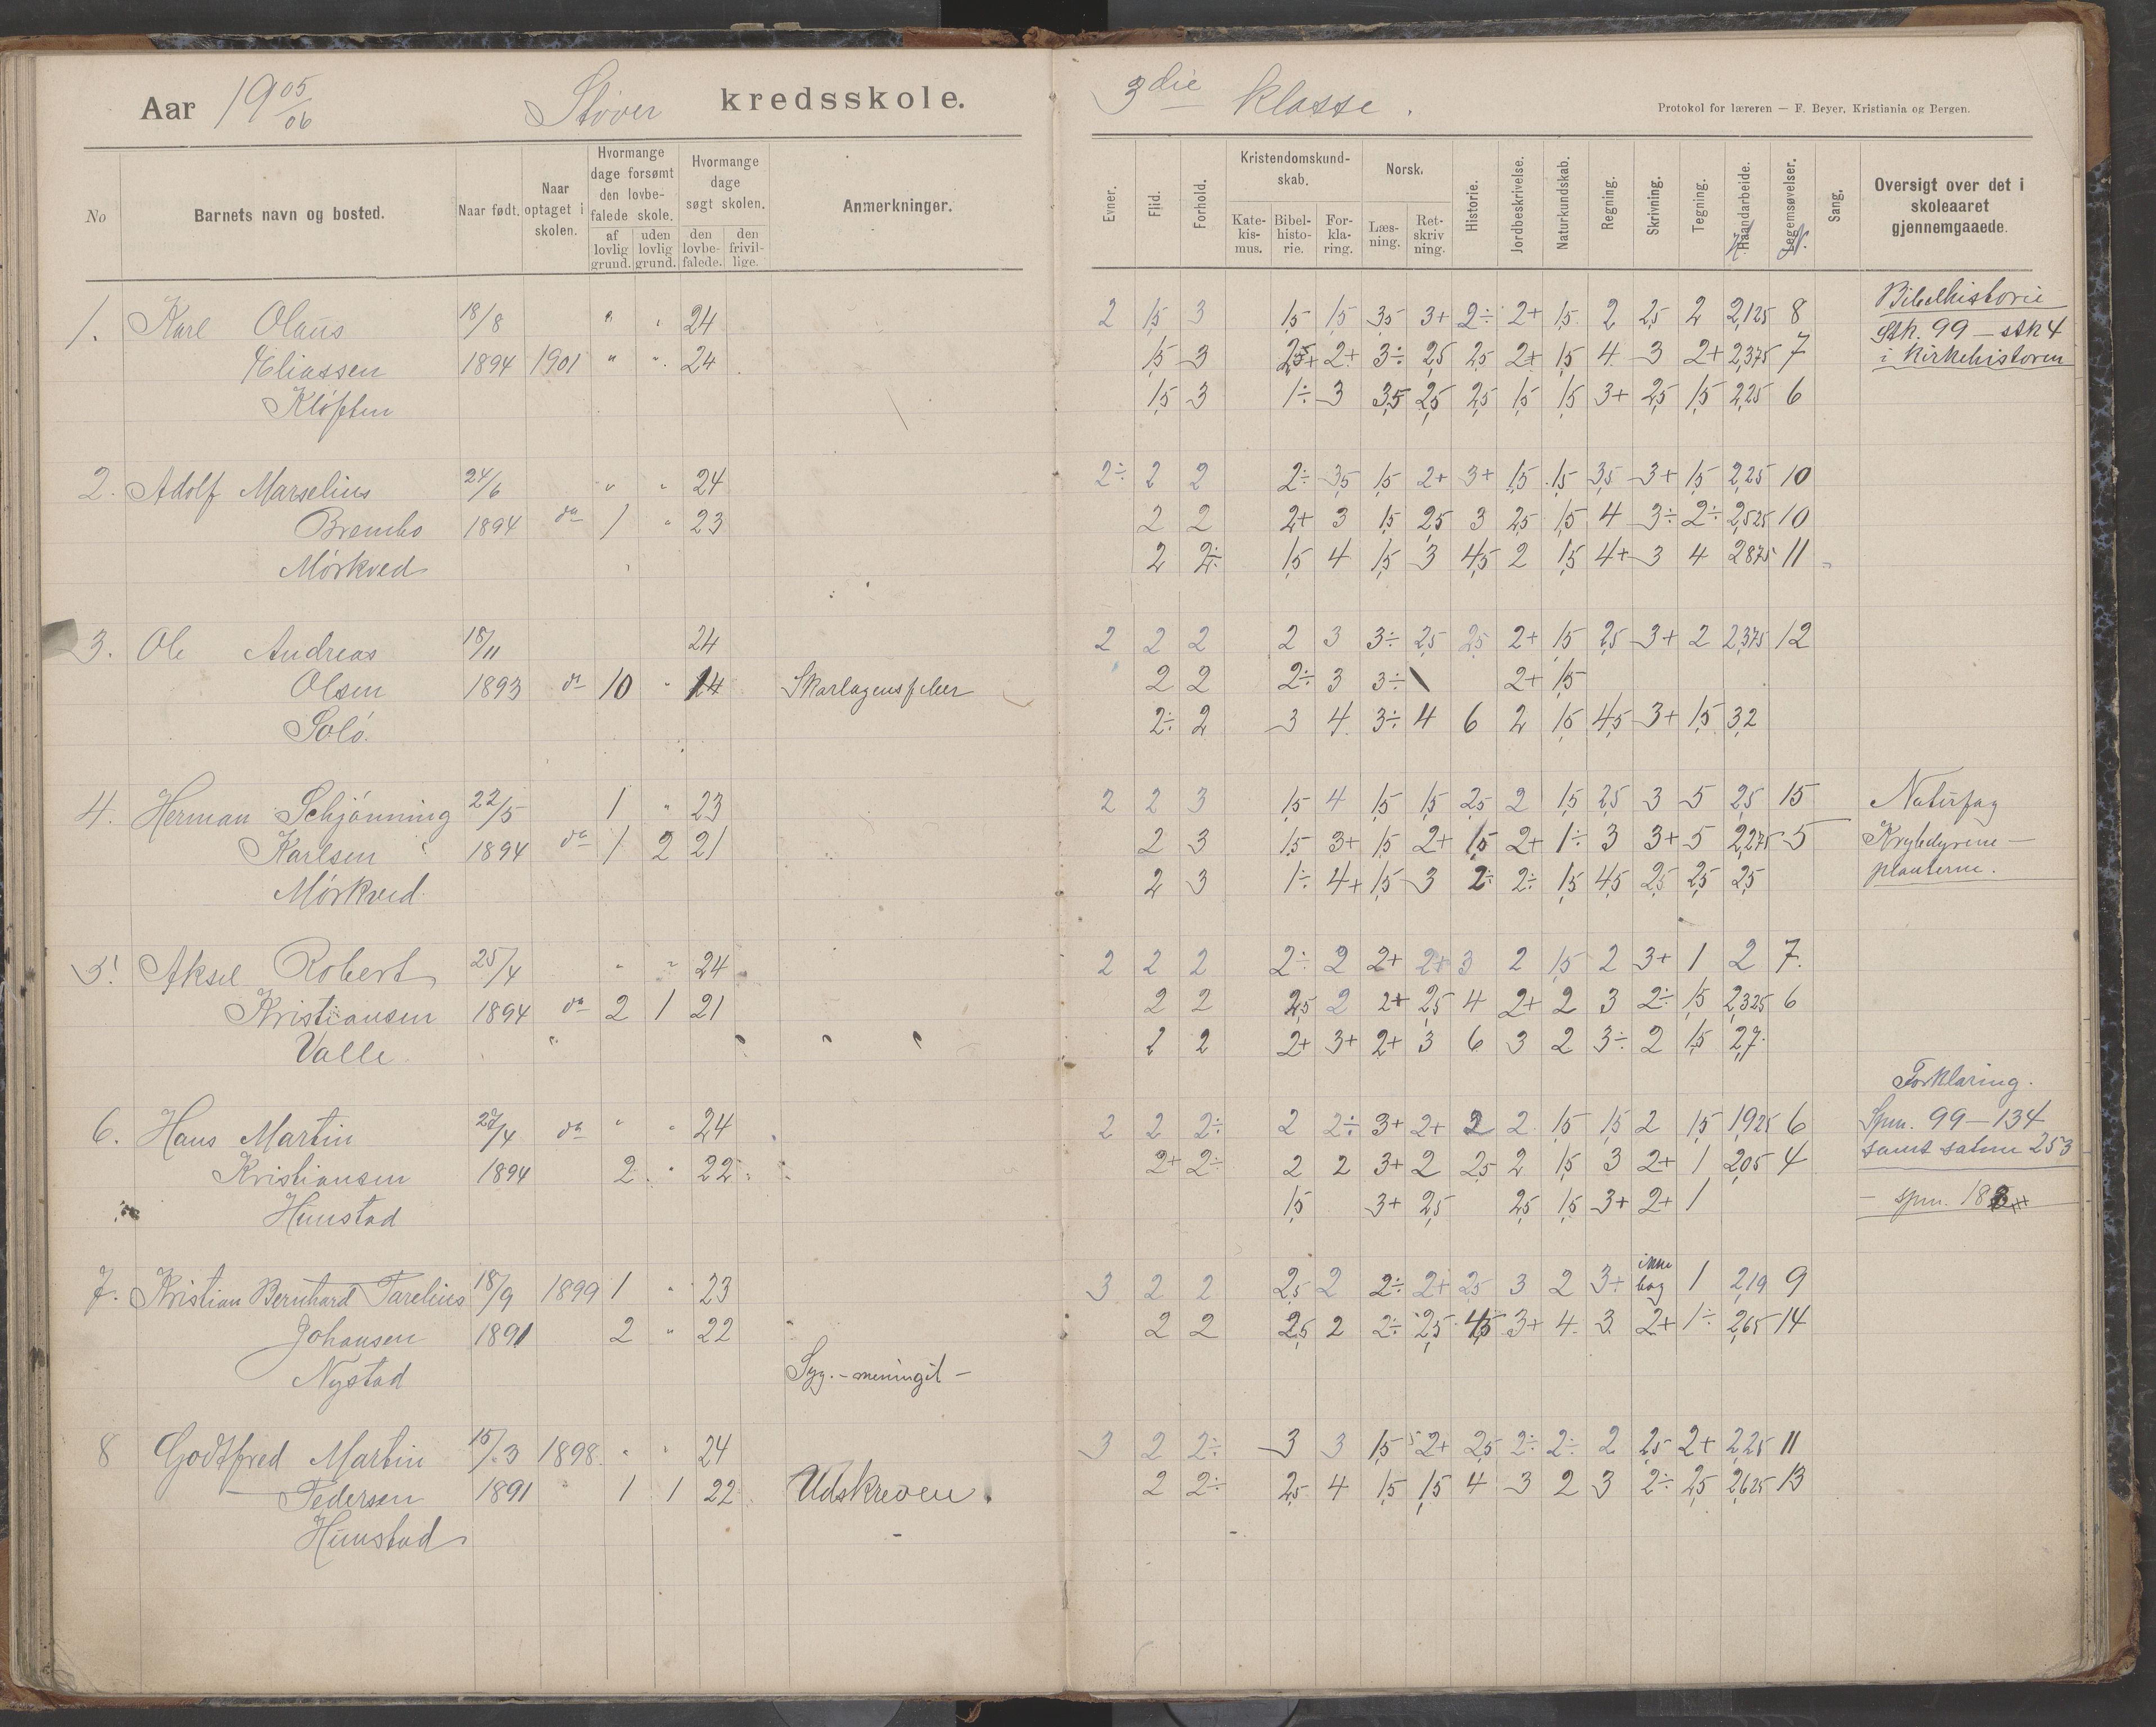 Aar 1905/06 Støver kredsskole. 3die klasse.
Protokol for læreren — F. Beyer, Kristiania og Bergen.
No Barnets navn og bosted. Naar født. Naar optaget i skolen. Hvormange dage forsømt den lovbefalede skole. af lovlig grund. uden lovlig grund. Hvormange dage søgt skolen. den lovbefalede. den frivillige. Anmerkninger.
Evner. Flid. Forhold. Kristendomskundskab. Katekismus. Bibelhistorie. Forklaring. Norsk. Læsning. Retskrivning. Historie. Jordbeskrivelse. Naturkundskab. Regning. Skrivning. Tegning. Haandarbeide. Legemsøvelser. Sang. Oversigt over det i skoleaaret gjennemgaaede.
1. Karl Olaus 18/8 " " 24 2 1,5 3 1,5 1,5 3,5 3+ 2÷ 2+ 1,5 2 2,5 2 2,125 8 Bibelhistorie
Stk. 99 – stk 4
Eliassen 1894 1901 " " 24 1,5 3 2,5+ 2+ 3÷ 2,5 2,5 2+ 1,5 4 3 2+ 2,375 7 i kirkehistorien
Kløften 1,5 3 1÷ 3 3,5 2,5 2,5 1,5 1,5 3+ 2,5 1,5 2,25 6
2. Adolf Marselius 24/6 " " 24 2÷ 2 2 2÷ 3,5 1,5 2+ 3+ 1,5 1,5 3,5 3+ 1,5 2,25 10
Brembo 1894 do 1 " 23 2 2 2+ 3 1,5 2,5 3 2,5 1,5 4 3÷ 2÷ 2,525 10
Mørkved 2 2÷ 1,5 4 1,5 3 4,5 2 1,5 4+ 3 4 2875 11
3. Ole Andreas 18/11 24 2 2 2 2 3 3÷ 2,5 2,5 2+ 1,5 2,5 3+ 2 2,375 12
Olsen 1893 do 10 " 14 Skarlagensfeber 2 2 2÷ 3 3÷ 2+ 1,5
Solø. 2÷ 2 3 4 3÷ 4 6 2 1,5 4,5 3+ 1,5 3,2
4. Herman Schjønning 22/5 1 " 23 2 2 3 1,5 4 1,5 1,5 2,5 2 1,5 2,5 3 5 2,5 15 Naturfag
Karlsen 1894 do 1 2 21 2 3 1,5 3+ 1,5 2+ 1,5 2+ 1÷ 3 3+ 5 2,275 5 Krybdyrene –
Mørkved 2 3 1÷ 4+ 1,5 3 2÷ 2÷ 1,5 4,5 2,5 2,5 2,5 planterne.
5. Aksel Robert 25/4 " " 24 2 2 2 2÷ 2 2+ 2+ 3 2 1,5 2 3+ 1 2 7.
Kristiansen 1894 do 2 1 21 2 2 2,5 2 2+ 2,5 4 2+ 2 3 2÷ 1,5 2,325 6
Valle 2 2 2+ 3+ 2+ 3 6 3 2 3÷ 2 1,5 2,7
Forklaring.
6. Hans Martin 27/4 do " " 24 2 2 2÷ 2 2÷ 3+ 2+ 2 2 1,5 1,5 2 1,5 1,925 6 Spm. 99 – 134
Kristiansen 1894 2 " 22 2+ 2÷ 2 2 3+ 2 2,5 2 1,5 3 2+ 1 2,05 4 samt satne 253
Hunstad 1,5 3+ 2,5 2,5 1,5 3+ 2+ 1 – spm. 18
7. Kristian Bernhard Tarelius 18/9 1899 1 " 23 3 2 2 2,5 2 2÷ 2+ 2,5 3 2 3+ bog 1 2,19 9
Johansen 1891 2 " 22 2 2 2,5 2 2÷ 2,5 4,5 3+ 4 3 2+ 1÷ 2,65 14
Nystad Syg. – meningit –
8 Godtfred Martin 15/3 1898 " " 24 3 2 2÷ 3 3 1,5 2+ 2,5 2÷ 2÷ 2 2,5 2+ 2,25 11
Pedersen 1891 1 1 22 Udskreven. 2 2÷ 2,5 4 1,5 1,5 4 3 2 3 2÷ 2,5 2,625 13
Hunstad